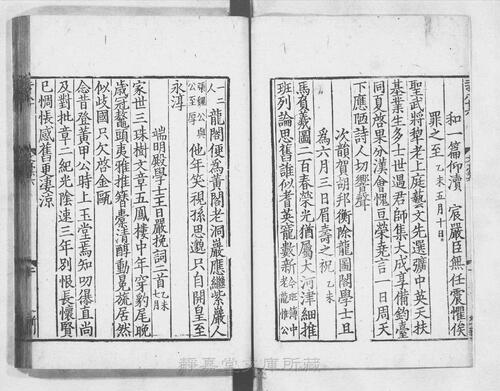 和一篇仰瀆 宸嚴臣無任震懼俟
罪之至 乙未五月十日
聖武將犁老上庭藝文先選彍中英天扶
基業生多士世遇君師集大成享備鈞臺
同夏啓果分漢會愧豆榮堯言一日周天
下應哂詩人切
次韻賀胡邦衡除龍圖閣學士且
為六月三日眉壽之祝 乙未
馬負羲圖二百春榮光猶屬大河津細推
班列論思舊誰似耆英寵數新 令班譜中老龍惟公
一二人 龍閣便為黃閣老洞巖應繼紫巖人
張魏公與公至厚 他年笑視孫思邈只自開皇至
永淳
端明殿學士王日嚴挽詞二首 乙未七月
家世三珠樹文章五鳳樓中年穿豹尾晚
歲冠鼇頭夷雅推耆耋清醇動冕旒居然
似歧國只欠啓金甌
念昔登黃甲公時上玉堂焉知叨儤直尚
及對批章二紀光陰速三年別恨長懷賢
已惆悵感舊更淒涼
靜嘉堂文庫所藏